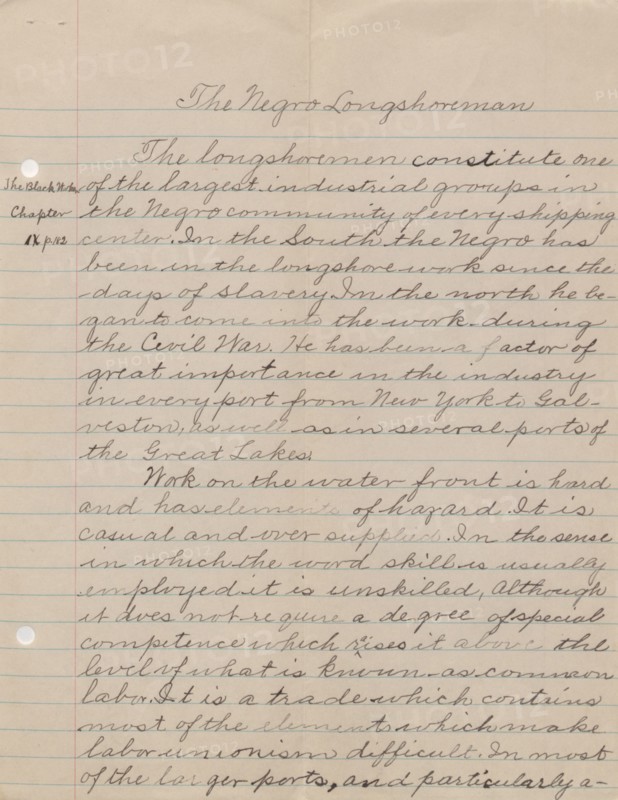 The Negro Longshoreman
The longshoremen constitute one
The Black Worker
Chapter
IX p. 182
of the largest industrial groups in
the Negro community of every shipping
center. In the South the Negro has
been in the longshore work since the
days of slavery. In the north he be-
gan to come into the work during
the Civil War. He has been a factor of
great importance in the industry
in every port from New York to Gal-
veston, as well as in several ports of
the Great Lakes.
Work on the water front is hard
and has elements of hazard. It is
casual and over supplied. In the sense
in which the word skill is usually
employed it is unskilled, Although
it does not require a degree of special
competence which rises it above the
level of what is known as common
labor. It is a trade which contains
most of the elements which make
labor unionism difficult. In most
of the larger ports, and particularly a-
PHOTO12